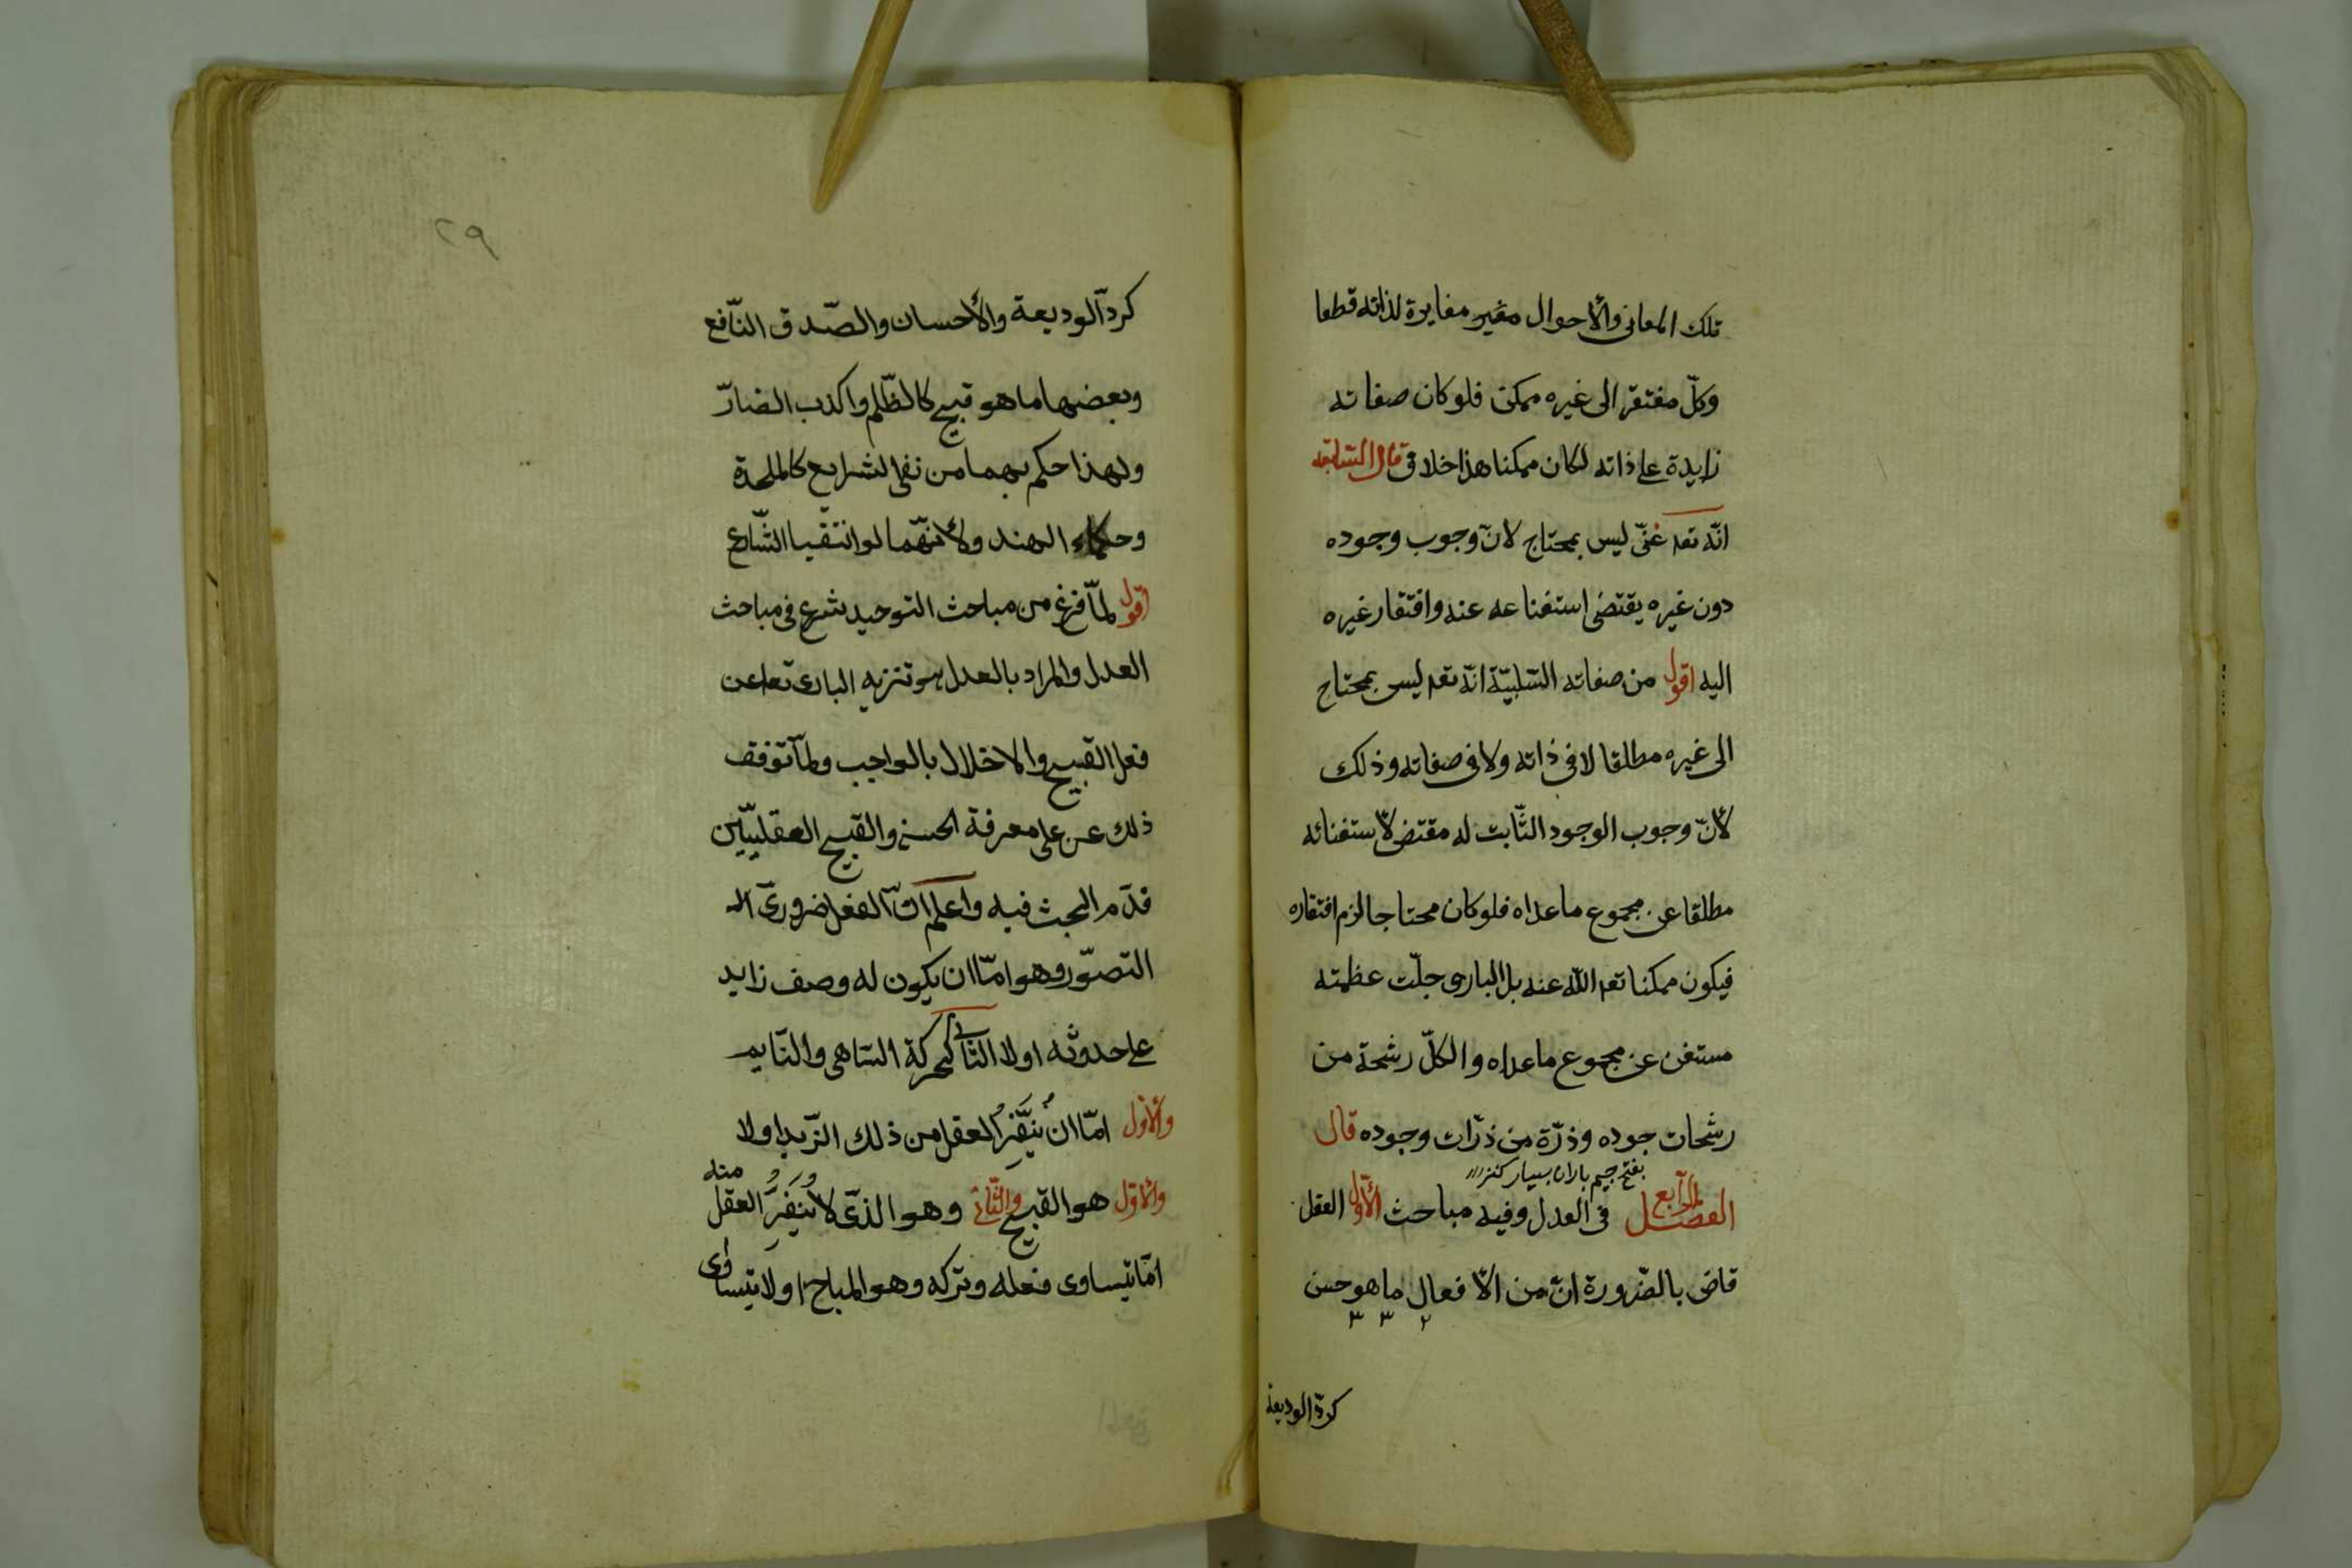 تلك المعانى والأحوال مغير مغايرة لذاته قطعا
وكلّ مفتقر الى غيره ممكن فلو كان صفاته
زايدة على ذاته لكان ممكنا هذا خلاف قال السّابعة
انّه تعه غنىّ ليس بمحتاج لانّ وجوب وجوده
دون غيره يقتضى استغناعه عنه وافتقار غيره
اليه اقول من صفاته السّلبيّة انّه تعه ليس بمحتاج
الى غيره مطلقا لا فى ذاته ولا فى صفاته وذلك
لأنّ وجوب الوجود الثّابت له مقتض لأستغنائه
مطلقا عن مجموع ما عداه فلو كان محتاجا لزم افتقاره
فيكون ممكنا تعه اللّه عنه بل البارى جلّت عظمته
مستغن عن مجموع ما عداه والكلّ رشحة من
رشحات جوده وذرّة من ذرّات وجوده قال
بفتح جيم باران بسيار كنز
الفصل الرّابع فى العدل وفيه مباحث الأوّل العقل
قاض بالضّرورة انّ من الأفعال ما هو حسن
٢ ٣ ٣
كردّ الوديعة
٢٩
كردّ الوديعة والأحسان والصّدق النّافع
وبعضها ما هو قبيح كالظّلم واكذب الضارّ
ولهذا حكم بهما من نفى الشرايع كالملحدة
وحكماء الهند ولأنّهما لو انتقيا الشّارع
اقول لمّا فرغ من مباحث التوحيد شرع فى مباحث
العدل والمراد بالعدل هو تنزيه البارى تعا عن
فعل القبيح والاخلال بالواجب ولمّا توفقف
ذلك عن على معرفة الحسن والقبيح العقليّين
قدّم البحث فيه واعلم انّ الفعل ضرورىّ الـ
التصوّر وهو امّا ان يكون له وصف زايد
على حدوثه اولا الثّانى كحركة السّاهى والنّايم
والأوّل امّا ان يُنَفِّرُ العقل من ذلك الزّيد اولا
والأوّل هو القبيح والثّانى وهو الذّى لا يُنَفِّرُ العقل منه
امّا يتساوى فعله وتركه وهو المباح او لا يتساوى